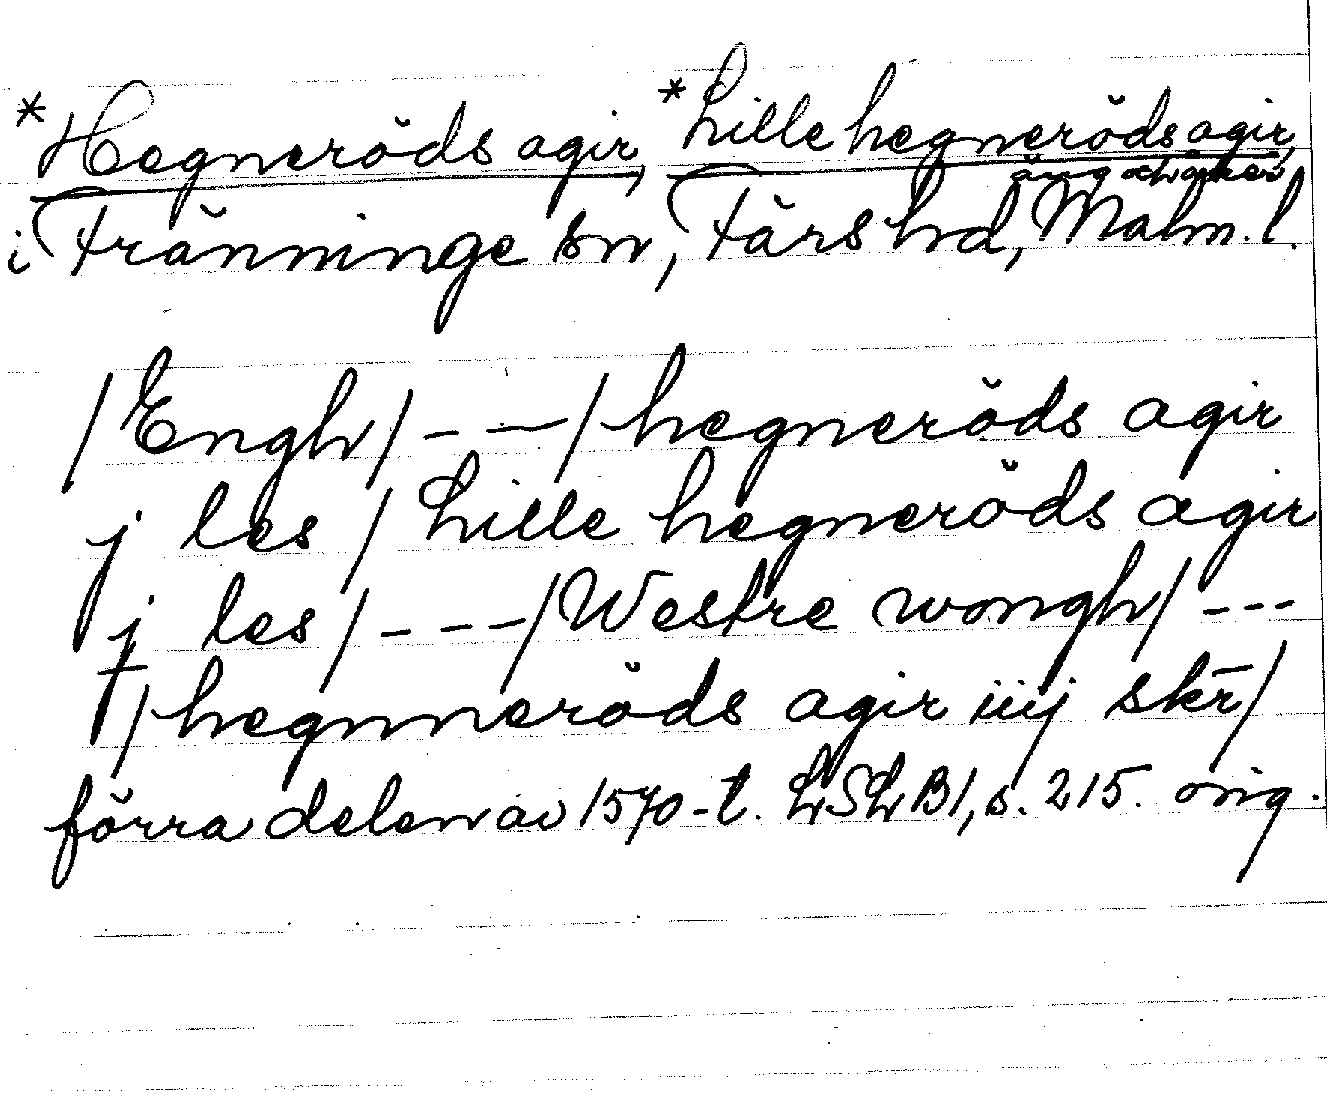 *Hegnerŏds agir, *Lille hegnerŏds agir,
äng och åker
i Tranninge sn, Färs hd, Malm. l.
/Engh/ - - - /hegnerŏds agir
j les / Lille hegnerŏds agir
j les / - - - /Westre wongh/ - - -
/hegnnerŏds agir iiij skr̄/
förra delen av 1570-t. LSLB1, s. 215. orig.